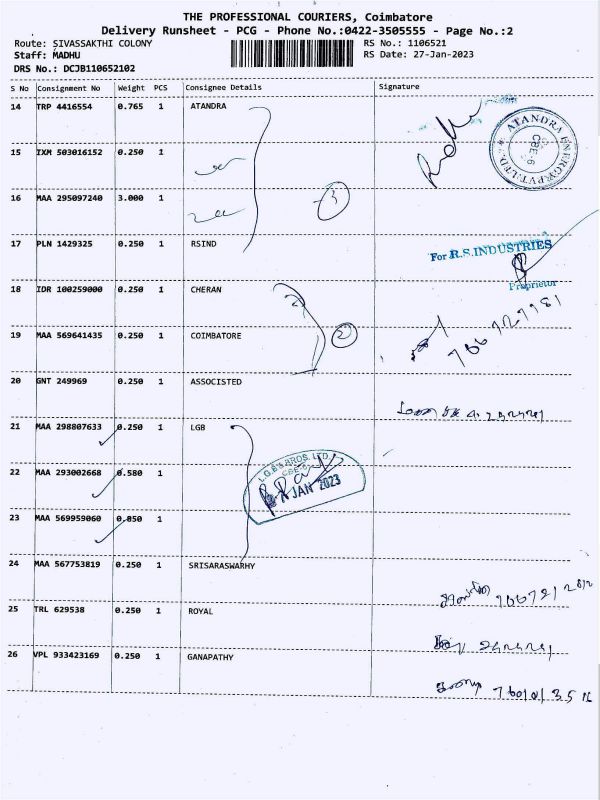 THE PROFESSIONAL COURIERS, Coimbatore
Delivery Runsheet - PCG - Phone No.:0422-3505555 - Page No.:2
Route: SIVASSAKTHI COLONY RS No.: 1106521
Staff: MADHU RS Date: 27-Jan-2023
DRS No.: DCJB110652102
S No Consignment No Weight PCS Consignee Details Signature
14 TRP 4416554 0.765 1 ATANDRA
ATANDRA ENERGY PVT.LTD. CBE-6
15 IXM 503016152 0.250 1
16 MAA 295097240 3.000 1
3
17 PLN 1429325 0.250 1 RSIND
For R.S.INDUSTRIES
Proprietor
18 IDR 100259000 0.250 1 CHERAN
19 MAA 569641435 0.250 1 COIMBATORE
2
20 GNT 249969 0.250 1 ASSOCISTED
21 MAA 298807633 0.250 1 LGB
22 MAA 293002668 0.580 1
L.G.B'S BROS. LTD.
CBE-6
JAN 2023
23 MAA 569959060 0.850 1
24 MAA 567753819 0.250 1 SRISARASWARHY
25 TRL 629538 0.250 1 ROYAL
26 VPL 933423169 0.250 1 GANAPATHY